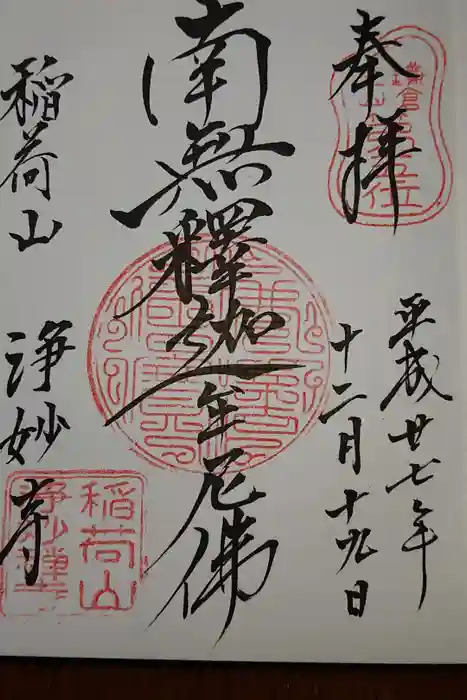 奉拝
平成廿七年
十二月十九日
南無釋迦牟尼佛
稲荷山 浄妙寺
鎌倉五山第五位
稲荷山
浄妙禅寺